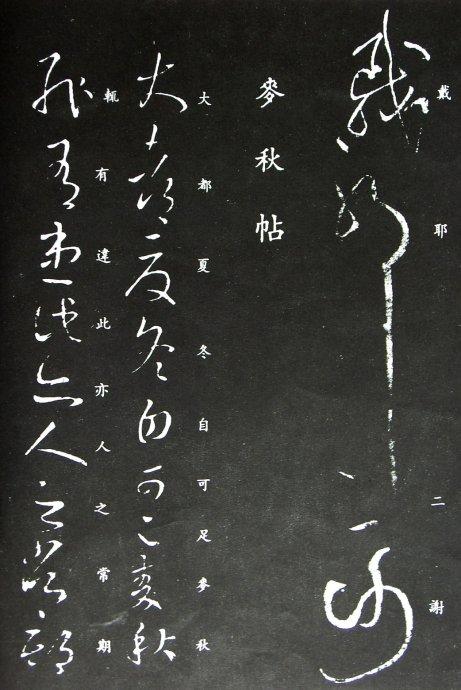 戴耶二謝
麥秋帖
大都夏冬自可足麥秋
輒有違此亦人之常期